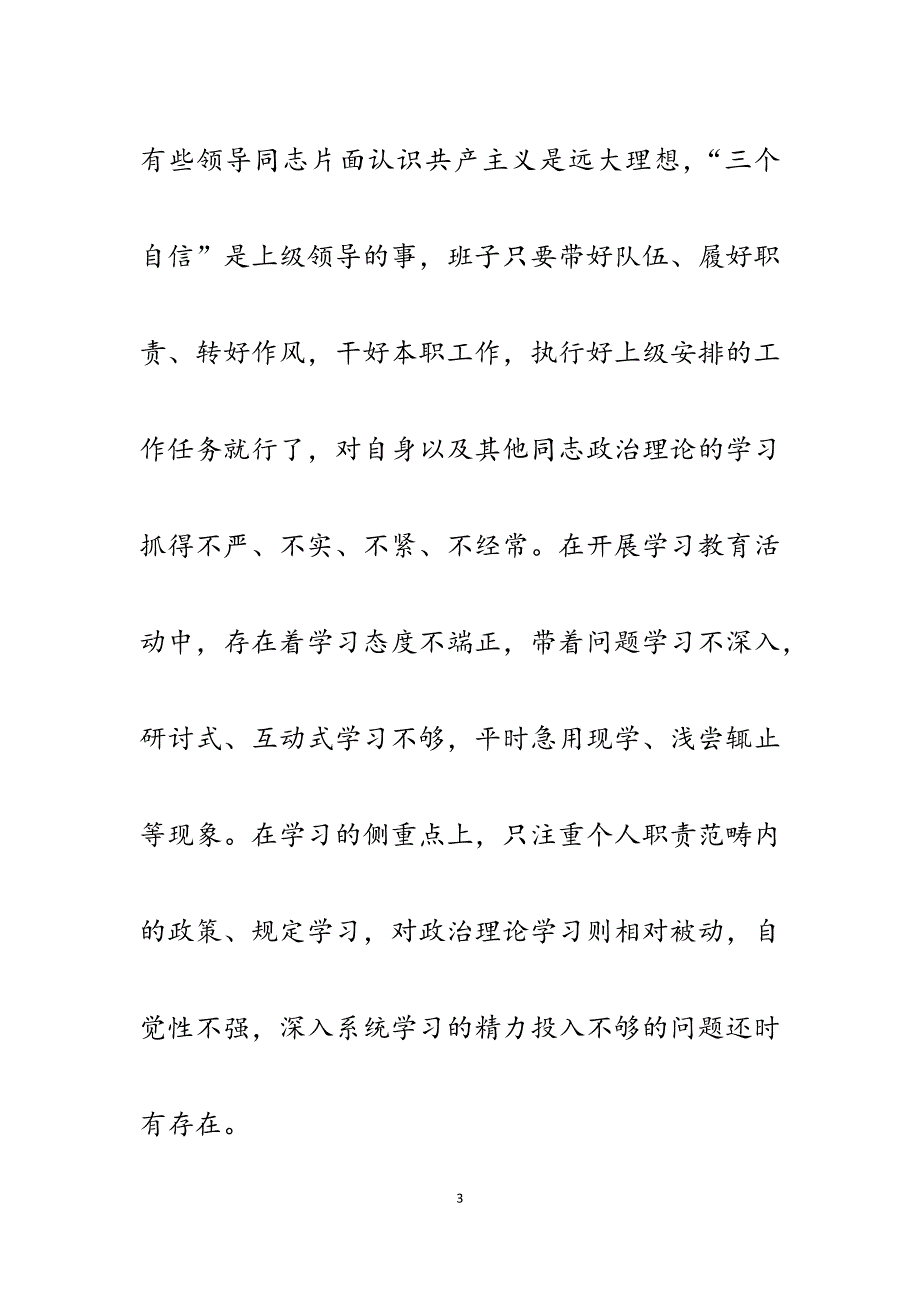 有些领导同志片面认识共产主义是远大理想，“三个
自信”是上级领导的事，班子只要带好队伍、履好职
责、转好作风，干好本职工作，执行好上级安排的工
作任务就行了，对自身以及其他同志政治理论的学习
抓得不严、不实、不紧、不经常。在开展学习教育活
动中，存在着学习态度不端正，带着问题学习不深入，
研讨式、互动式学习不够，平时急用现学、浅尝辄止
等现象。在学习的侧重点上，只注重个人职责范畴内
的政策、规定学习，对政治理论学习则相对被动，自
觉性不强，深入系统学习的精力投入不够的问题还时
有存在。
3